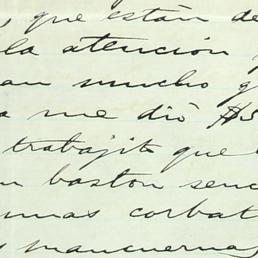 , que están de
la atención y
an mucho g
a me dió $5
trabajito que
n baston senc
unas corbat
s mancuernas